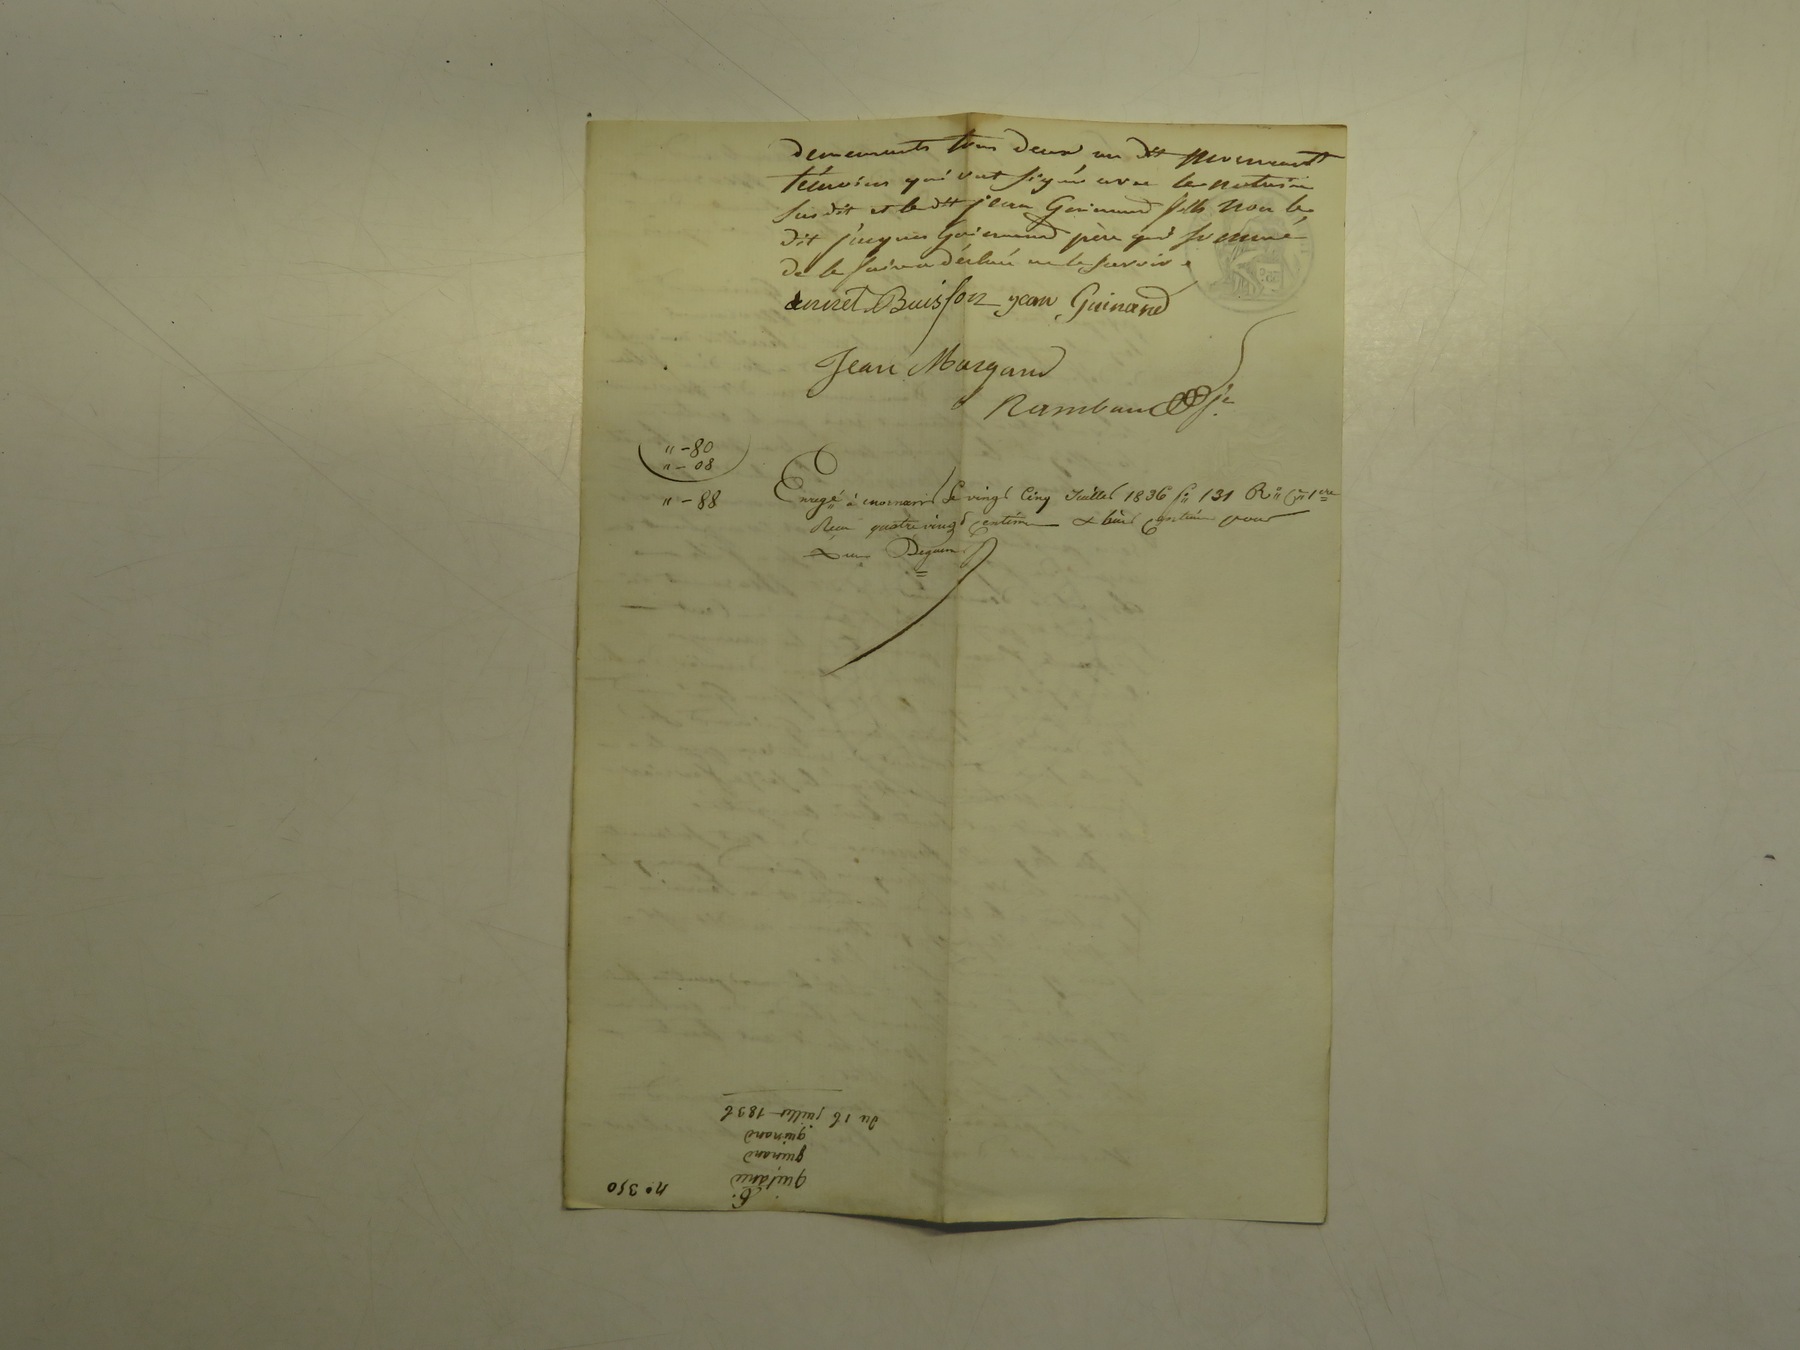 demeurants tous deux au dit mornant
témoins qui ont signé avec le notaire
susdit et le dit jean Guinand fils non le
dit jacques Guinand père qui sommé
de le faire a déclaré ne le savoir.
Buisson jean Guinand
Jean Margand
Rambaud
" - 80
" - 08
" - 88
Enregé à mornant le vingt Cinq Juillet 1836 fo 131 Ro Ce 1ere
Reçu quatre vingt Centimes & huit Centimes pour
Dixme
du 16 juillet 1836
guinand
guinand
quitance
n° 350